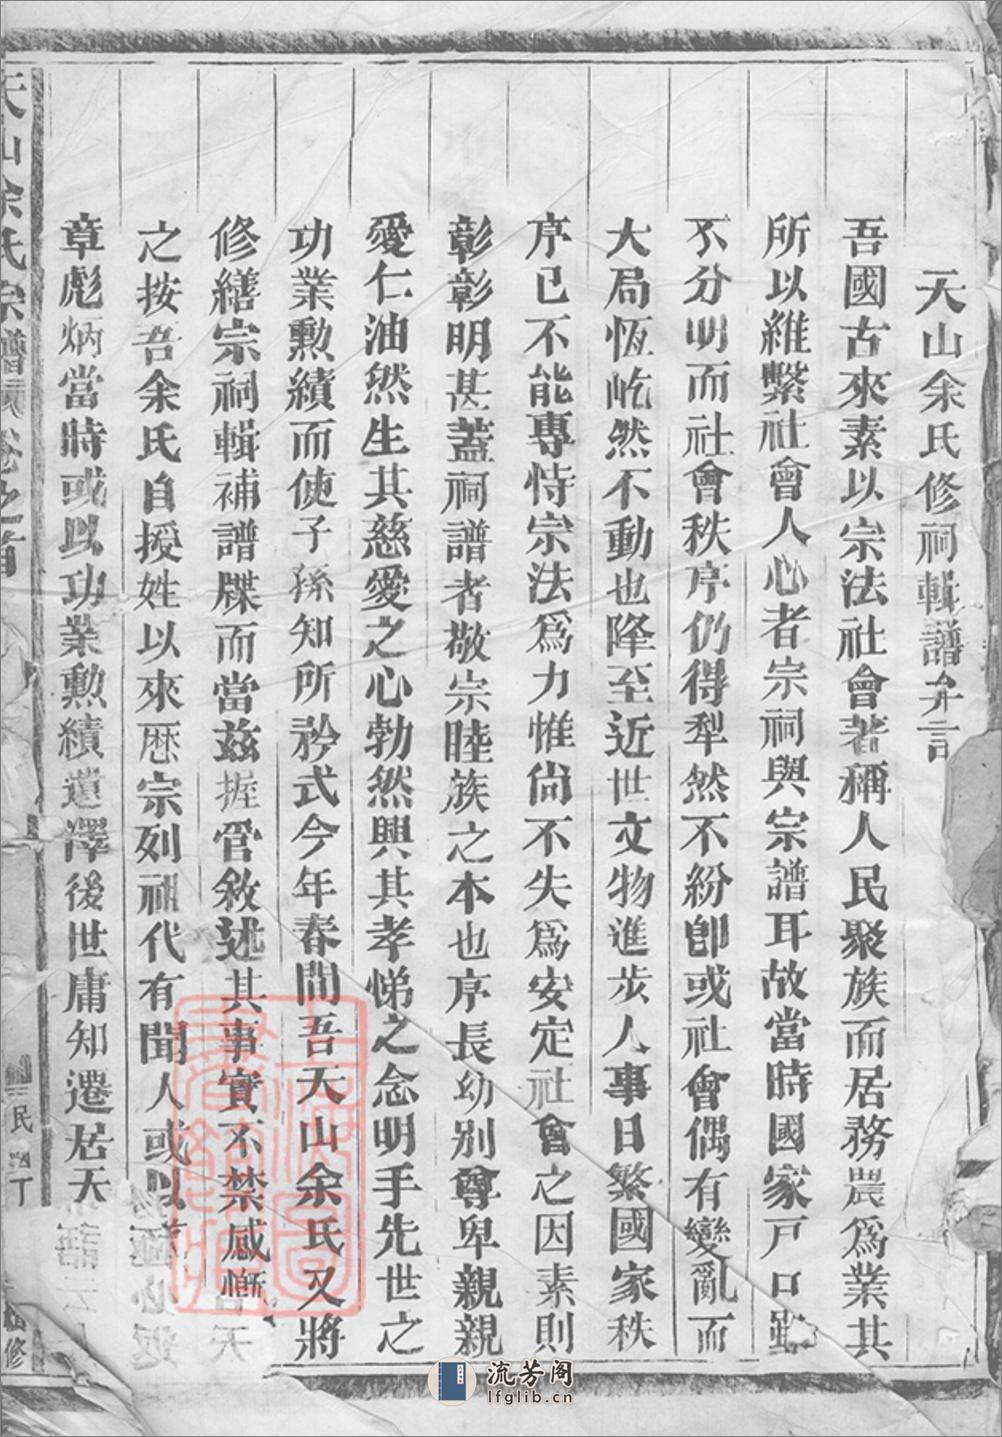 天山余氏修祠輯譜弁言
吾國古來素以宗法社會著稱人民聚族而居務農爲業其
所以維繫社會人心者宗祠與宗譜耳故當時國家戸口雖
不分明而社會秩序仍得犁然不紛卽或社會偶有變亂而
大局恆屹然不動也降至近世文物進步人事日繁國家秩
序已不能專恃宗法爲力惟尙不失爲安定社會之因素則
彰彰明甚蓋祠譜者敬宗睦族之本也序長幼別尊卑親親
愛仁油然生其慈愛之心勃然興其孝悌之念明乎先世之
功業勳績而使子孫知所矜式今年春間吾天山余氏又將
修繕宗祠輯補譜牒而當兹握管敘述其事實不禁感慨
之按吾余氏自授姓以來歷宗列祖代有聞人或以
章彪炳當時或以功業勳績遺澤後世庸知遷居天
天山余氏宗譜 卷之首
民
丁
修
上海圖書館藏
流芳阁
lfglib.cn